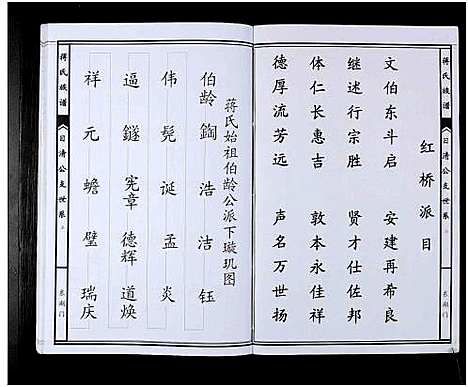 蒋氏族谱
日清公支世系
东湖门
红桥派目
文伯东斗启 安建再希良
继述行宗胜 贤才仕佐邦
体仁长惠吉 敦本永佳祥
德厚流芳远 声名万世扬
蒋氏始祖伯龄公派下璇玑图
伯龄 鍧 浩 洁 钰
伟 髡 诞 孟 炎
逼 鐩 宪章 德辉 道焕
祥 元 蟾 璧 瑞庆
蒋氏族谱
日清公支世系
东湖门